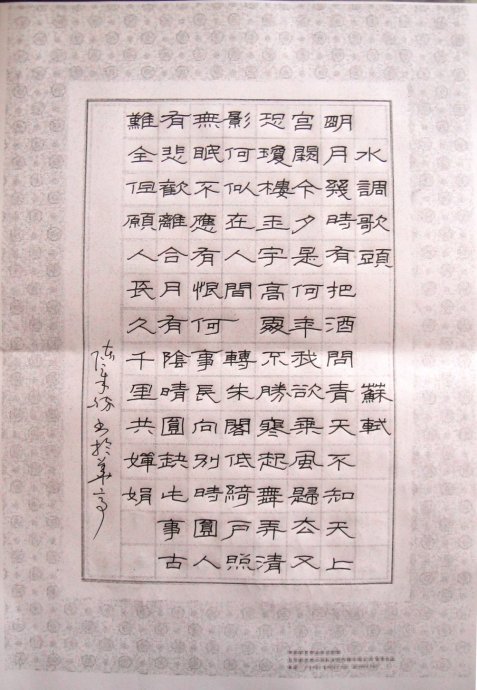 水調歌頭　蘇軾
明月幾時有把酒問青天不知天上
宫闕今夕是何年我欲乘風歸去又
恐瓊樓玉宇高處不勝寒起舞弄清
影何似在人間一轉朱閣低綺户照
無眠不應有恨何事長向别時圓人
有悲歡離合月有陰晴圓缺此事古
難全但願人長久千里共嬋娟
书於華亭